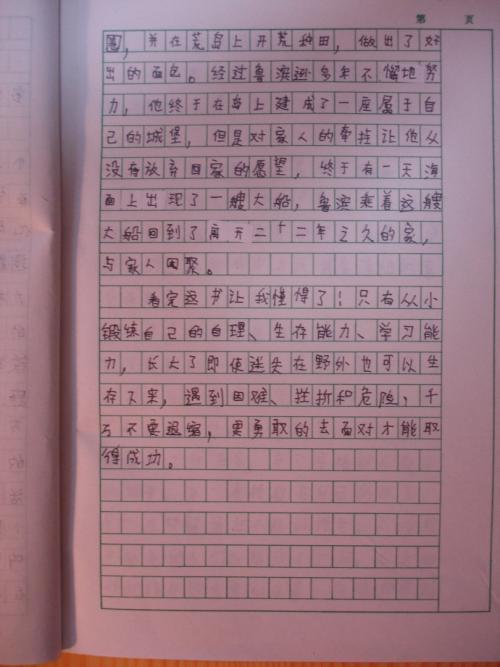 第 页
圈，并在荒岛上开荒种田，做出了好
出的面包。经过鲁滨逊多年不懈地努
力，他终于在岛上建成了一座属于自
己的城堡，但是对家人的牵挂让他从
没有放弃回家的愿望，终于有一天海
面上出现了一艘大船，鲁滨乘着这艘
大船回到了离开二十二年之久的家，
与家人团聚。
看完这书让我懂得了：只有从小
锻练自己的自理、生存能力、学习能
力，长大了即使迷失在野外也可以生
存下来，遇到困难、挫折和危险，千
万不要退缩，要勇敢的去面对才能取
得成功。